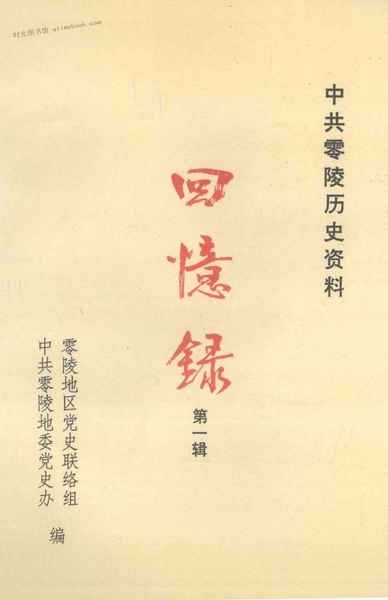 时光图书馆 etimebook.com
中共零陵历史资料
回憶録
第一辑
零陵地区党史联络组
中共零陵地委党史办
编